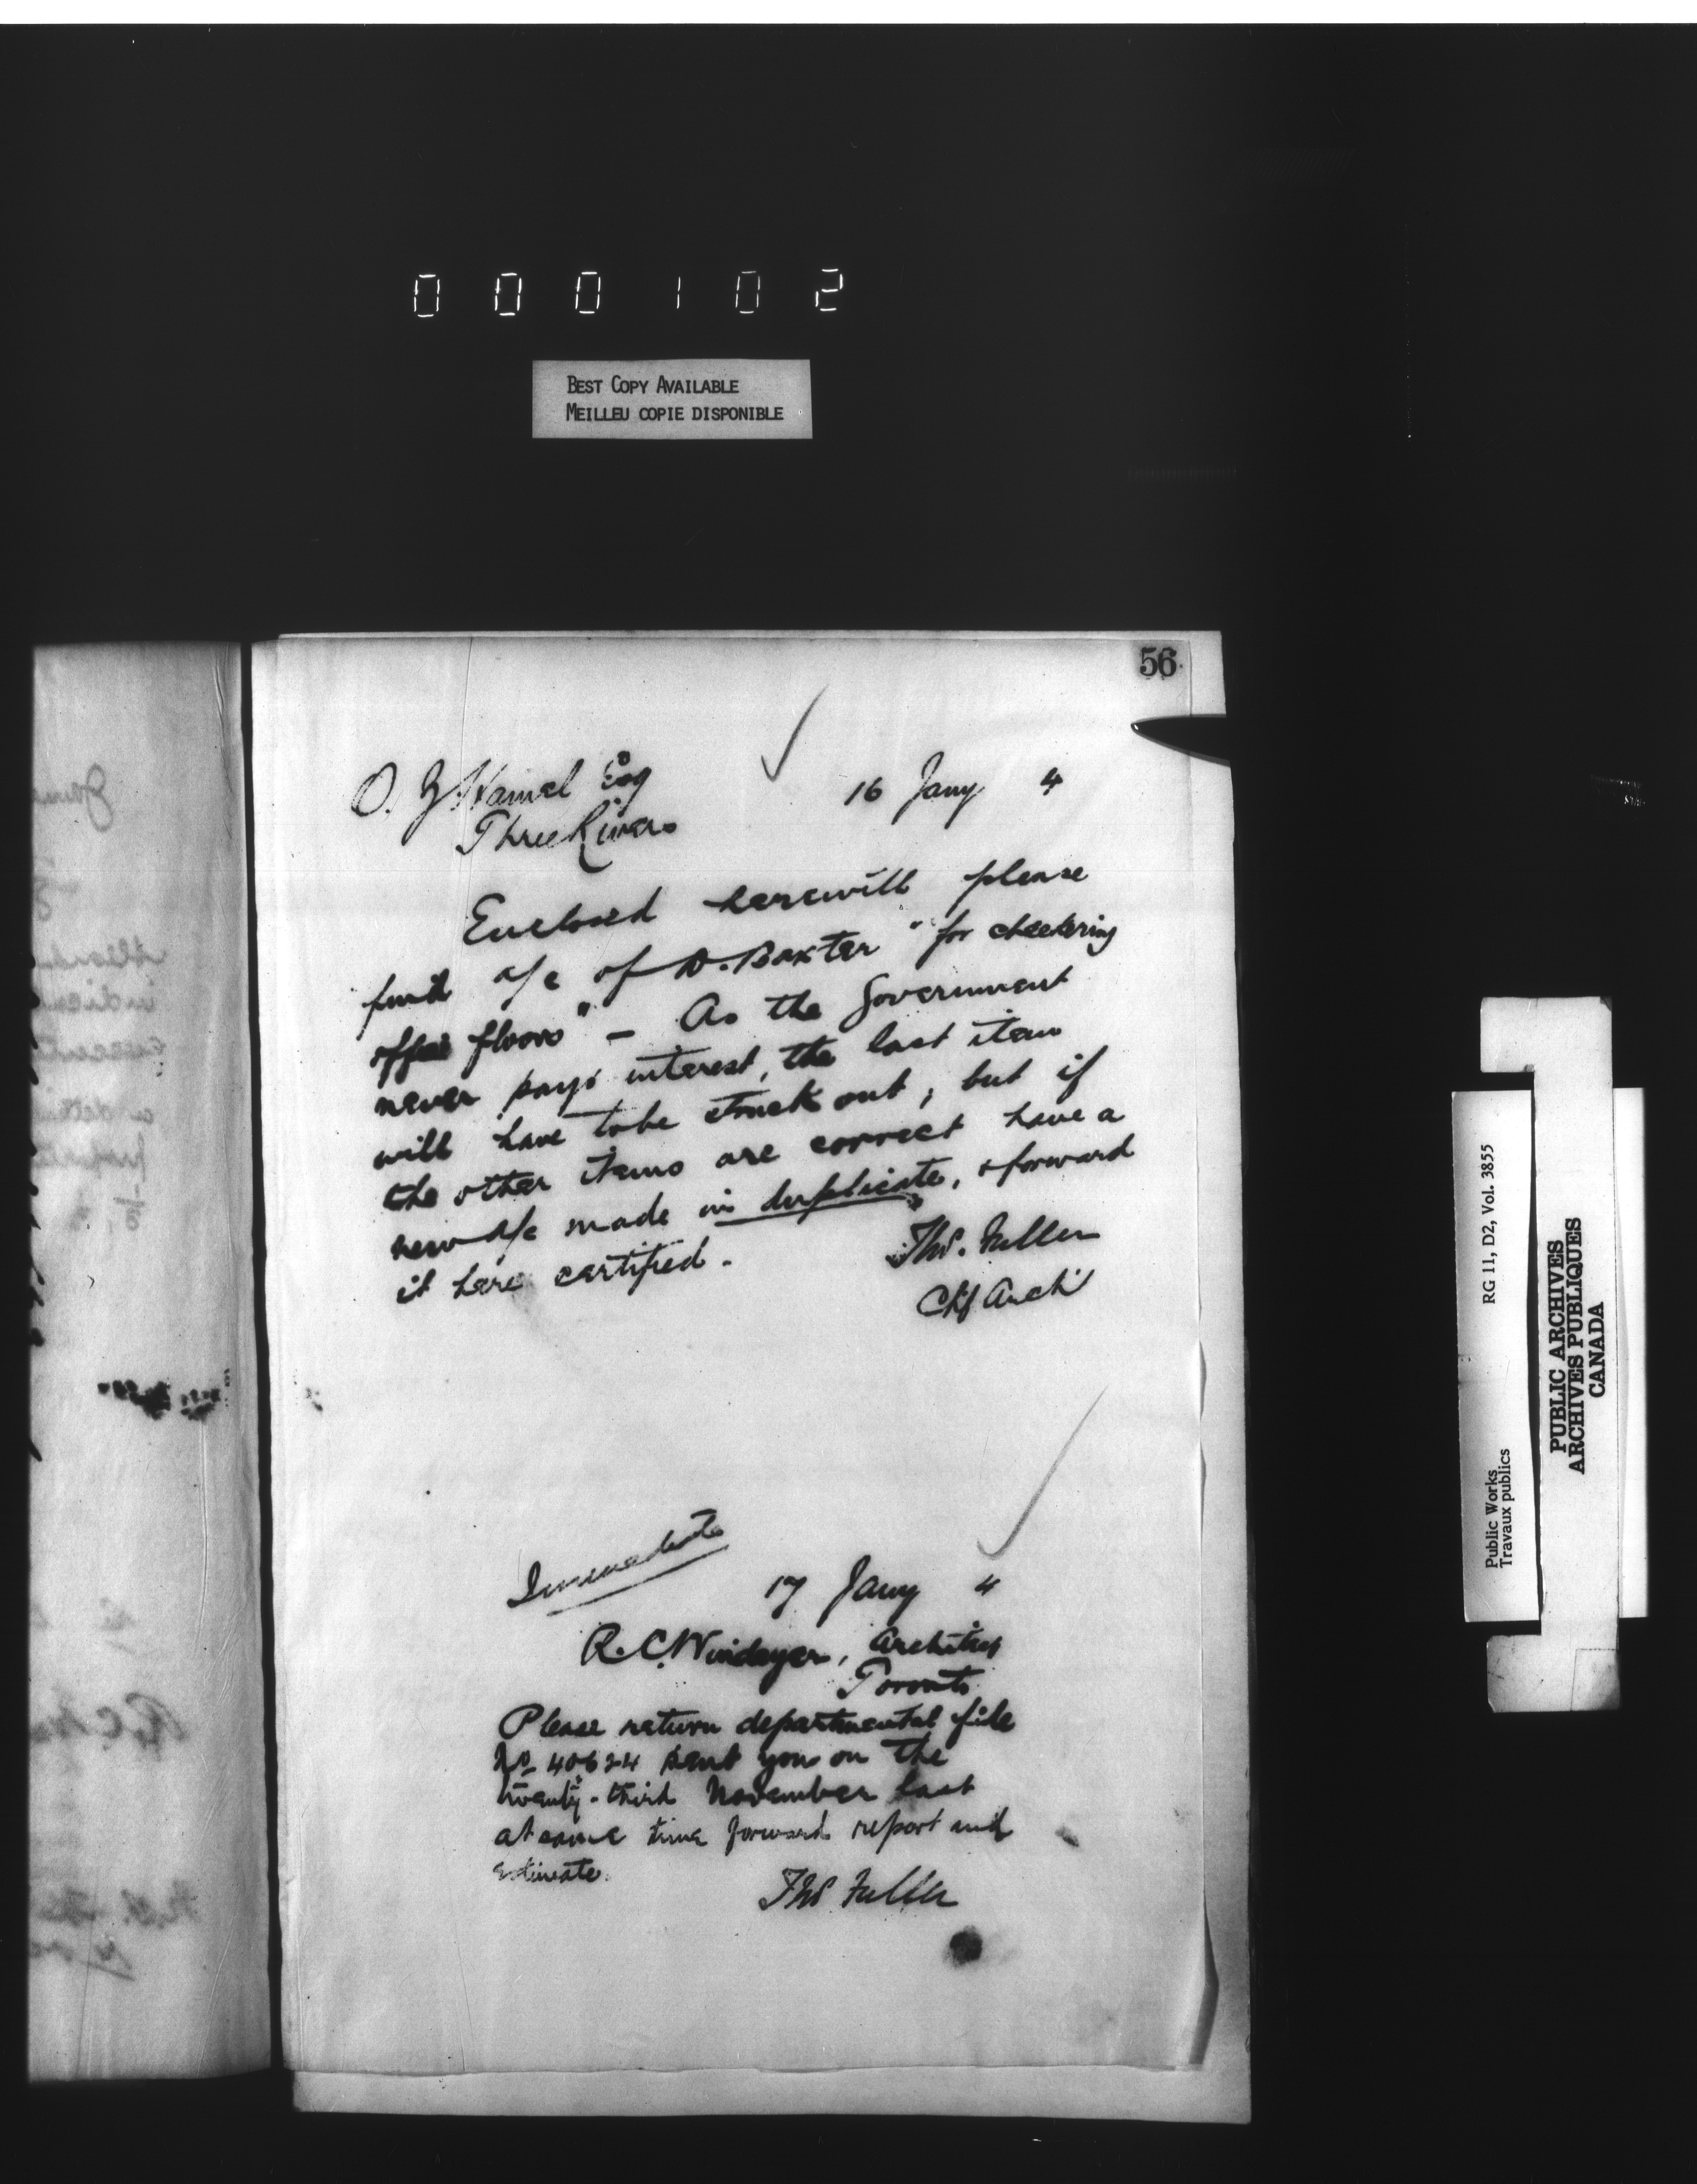 000102
BEST COPY AVAILABLE
MEILLEU COPIE DISPONIBLE
56
O. Z. Hamel Esq
16 Jany 4
Three Rivers
Enclosed herewith please
find a/c of D. Baxter "for checkering
office floors" – As the Government
never pays interest, the last item
will have to be struck out, but if
the other items are correct have a
new a/c made in duplicate, & forward
it here certified.
Thos. Fuller
Chf Arch
Immediate
17 Jany 4
R. C. Windeyer, Architect
Toronto
Please return departmental file
No 40624 sent you on the
twenty-third November last
at same time forward report and
estimate.
Thos Fuller
Public Works
Travaux publics
RG 11, D2, Vol. 3855
PUBLIC ARCHIVES
ARCHIVES PUBLIQUES
CANADA